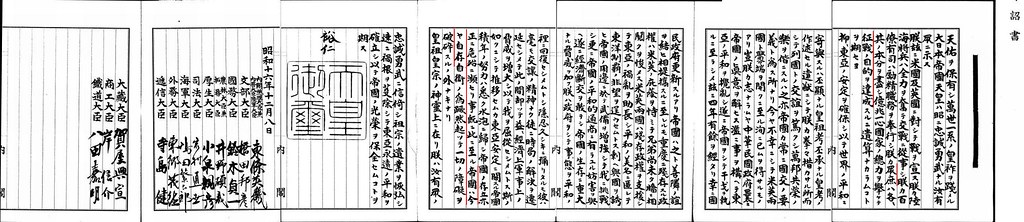 詔書
天佑ヲ保有シ萬世一系ノ皇祚ヲ踐メル
大日本帝國天皇ハ昭ニ忠誠勇武ナル汝有
眾ニ示ス
朕茲ニ米國及英國ニ對シテ戰ヲ宣ス朕カ陸
海將兵ハ全力ヲ奮テ交戰ニ從事シ朕カ百
僚有司ハ勵精職務ヲ奉行シ朕カ眾庶ハ各〻
其ノ本分ヲ盡シ億兆一心國家ノ總力ヲ擧ケテ
征戰ノ目的ヲ達成スルニ遺算ナカラムコト
ヲ期セヨ
抑〻東亞ノ安定ヲ確保シ以テ世界ノ平和ニ
内閣
寄與スルハ丕顯ナル皇祖考丕承ナル皇考ノ
作述セル遠猷ニシテ朕カ拳〻措カサル所
而シテ列國トノ交誼ヲ篤クシ萬邦共榮ノ
樂ヲ偕ニスルハ之亦帝國カ常ニ國交ノ要
義ト爲ス所ナリ今ヤ不幸ニシテ米英兩
國ト釁端ヲ開クニ至ル洵ニ已ムヲ得サルモ
ノアリ豈朕カ志ナラムヤ中華民國政府曩ニ
帝國ノ眞意ヲ解セス濫ニ事ヲ構ヘテ東
亞ノ平和ヲ攪亂シ遂ニ帝國ヲシテ干戈ヲ執
ルニ至ラシメ茲ニ四年有餘ヲ經タリ幸ニ國
民政府更新スルアリ帝國ハ之ト善隣ノ誼
ヲ結ヒ相提攜スルニ至レルモ重慶ニ殘存スル政
權ハ米英ノ庇蔭ヲ恃ミテ兄弟尚未タ牆ニ相
鬩クヲ悛メス米英兩國ハ殘存政權ヲ支援シ
テ東亞ノ禍亂ヲ助長シ平和ノ美名ニ匿レテ
東洋制覇ノ非望ヲ逞ウセムトス剩ヘ與國ヲ誘
ヒ帝國ノ周邊ニ於テ武備ヲ增強シテ我ニ挑戰
シ更ニ帝國ノ平和的通商ニ有ラユル妨害ヲ與
ヘ遂ニ經濟斷交ヲ敢テシ帝國ノ生存ニ重大
ナル脅威ヲ加フ朕ハ政府ヲシテ事態ヲ平和ノ
内閣
裡ニ囘復セシメムトシ隱忍久シキニ彌リタルモ彼ハ
毫モ交讓ノ精神ナク徒ニ時局ノ解決ヲ遷
延セシメテ此ノ間却ツテ益〻經濟上軍事上ノ
脅威ヲ增大シ以テ我ヲ屈從セシメムトス斯ノ
如クニシテ推移セムカ東亞安定ニ關スル帝國
積年ノ努力ハ悉ク水泡ニ歸シ帝國ノ存立亦
正ニ危殆ニ瀕セリ事既ニ此ニ至ル帝國ハ今
ヤ自存自衞ノ爲蹶然起ツテ一切ノ障礙ヲ
破碎スルノ外ナキナリ
皇祖皇宗ノ神靈上ニ在リ朕ハ汝有眾ノ
忠誠勇武ニ信倚シ祖宗ノ遺業ヲ恢弘シ
速ニ禍根ヲ芟除シテ東亞永遠ノ平和ヲ
確立シ以テ帝國ノ光榮ヲ保全セムコトヲ
期ス
裕仁
天皇御璽
昭和十六年十二月八日
内閣
東條英機
文部大臣 橋田邦彦
國務大臣 鈴木貞一
農林大臣 井野碩哉
厚生大臣 小泉親彦
司法大臣 岩村通世
海軍大臣 嶋田繁太郎
外務大臣 東郷茂徳
遞信大臣 寺島健
大藏大臣 賀屋興宣
商工大臣 岸信介
鐵道大臣 八田嘉明
内閣